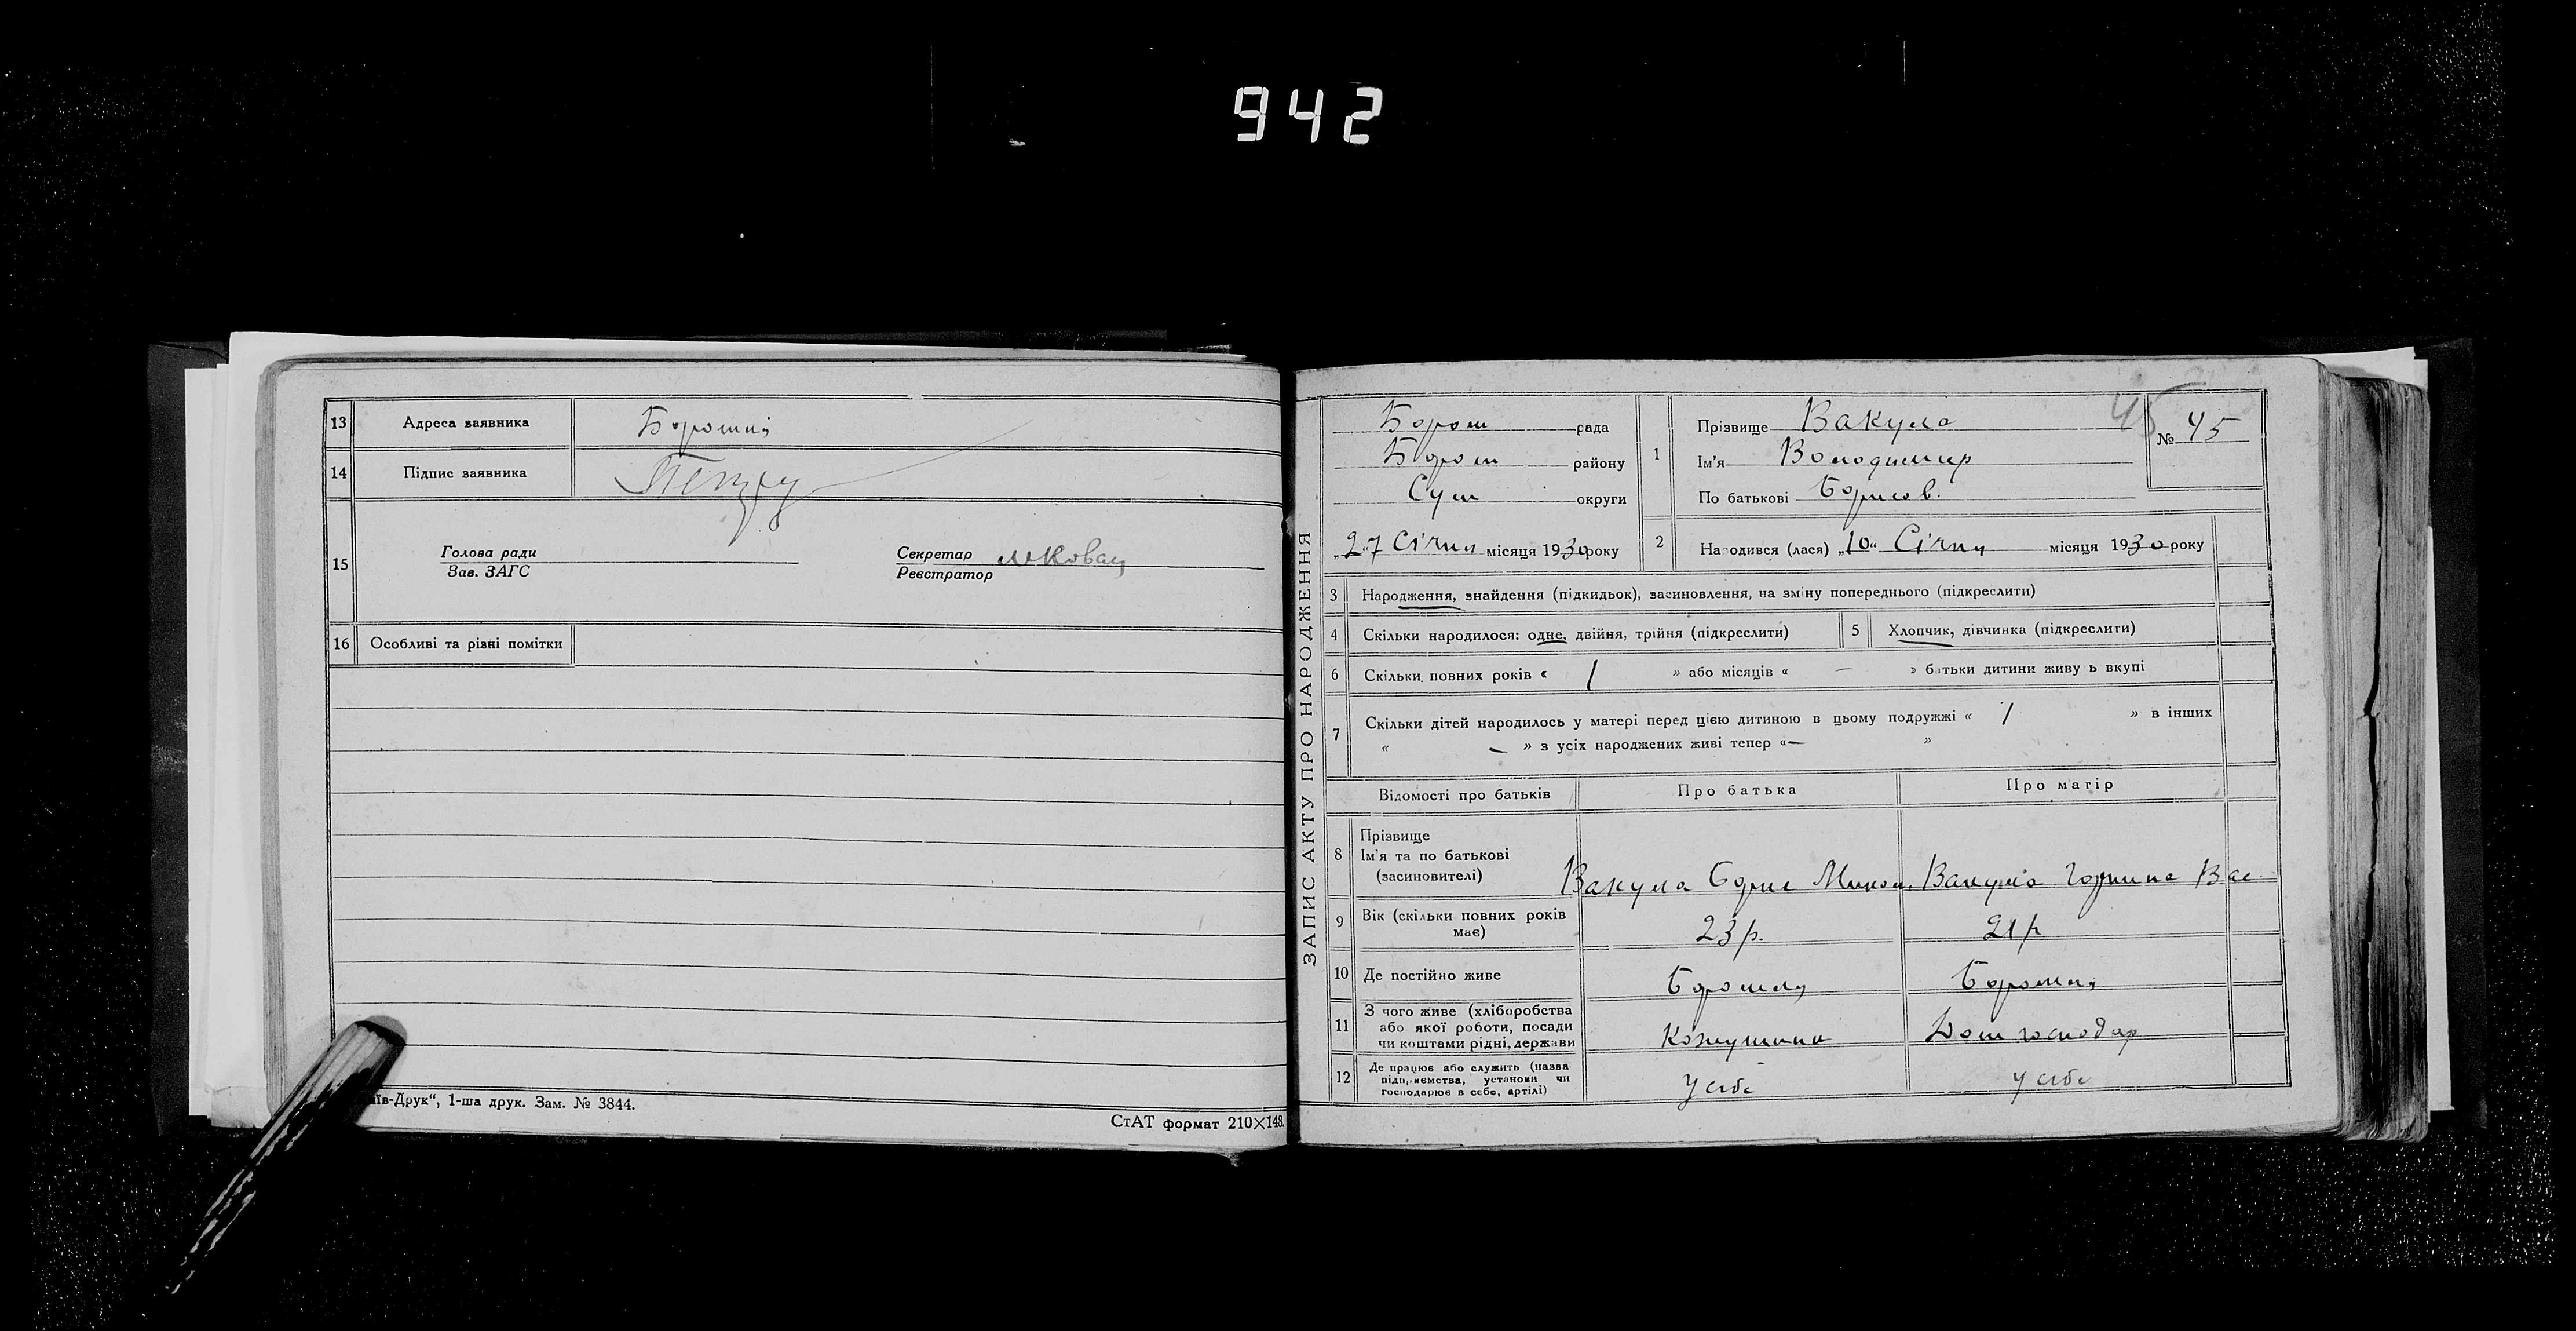 942
13 Адреса заявника Боромля
14 Підпис заявника
15 Голова ради
Зав. ЗАГС
Секретар
Реєстратор
16 Особливі та різні помітки
їв-Друк“, 1-ша друк. Зам. № 3844.
СтАТ формат 210×148.
ЗАПИС АКТУ ПРО НАРОДЖЕННЯ
Бором рада
Бором району
Сум округи
„27 Січня місяця 1930 року
1 Прізвище Вакула
Ім'я Володимир
По батькові Борисов.
45
№ 45
2 Народився (лася) „10“ Січня місяця 1930 року
3 Народження, знайдення (підкидьок), засиновлення, на зміну попереднього (підкреслити)
4 Скільки народилося: одне, двійня, трійня (підкреслити)
5 Хлопчик, дівчинка (підкреслити)
6 Скільки повних років « 1 » або місяців « — » батьки дитини живу ь вкупі
7 Скільки дітей народилось у матері перед цією дитиною в цьому подружжі « 1 » в інших
« — » з усіх народжених живі тепер «— »
Відомості про батьків Про батька Про матір
8 Прізвище
Ім'я та по батькові
(засиновителі)
Вакула Борис Микол. Вакула Горпина Вас
9 Вік (скільки повних років
має)
23 р. 21 р
10 Де постійно живе Боромля Боромля
11 З чого живе (хліборобства
або якої роботи, посади
чи коштами рідні, держави
Кожушник Дом господар
12 Де працює або служить (назва
підприємства, установи чи
господарює в себе, артілі)
У себе у себе